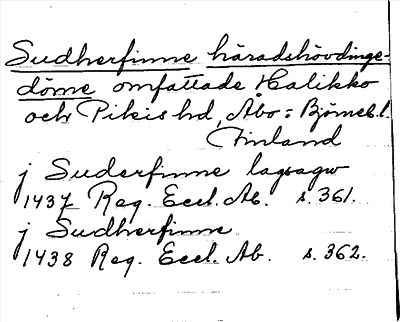 Sudherfinne häradshövdinge-
döme omfattade Halikko
och Pikis hd, Åbo = Björneb. l.
Finland
j Suderfinne lagsagw
1437 Reg. Eccl. Ab. s. 361.
j Sudherfinne
1438 Reg. Eccl. Ab. s. 362.